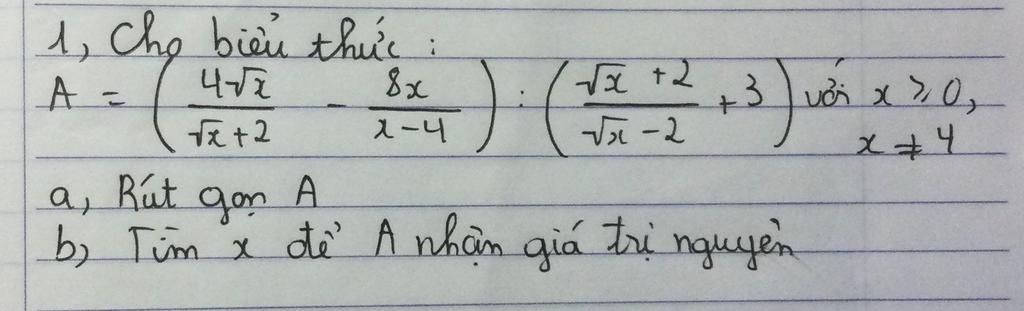 1, Cho biểu thức :
A = ( 4√x / (√x + 2) - 8x / (x - 4) ) : ( (√x + 2) / (√x - 2) + 3 ) với x ⩾ 0,
x ≠ 4
a, Rút gọn A
b, Tìm x để A nhận giá trị nguyên